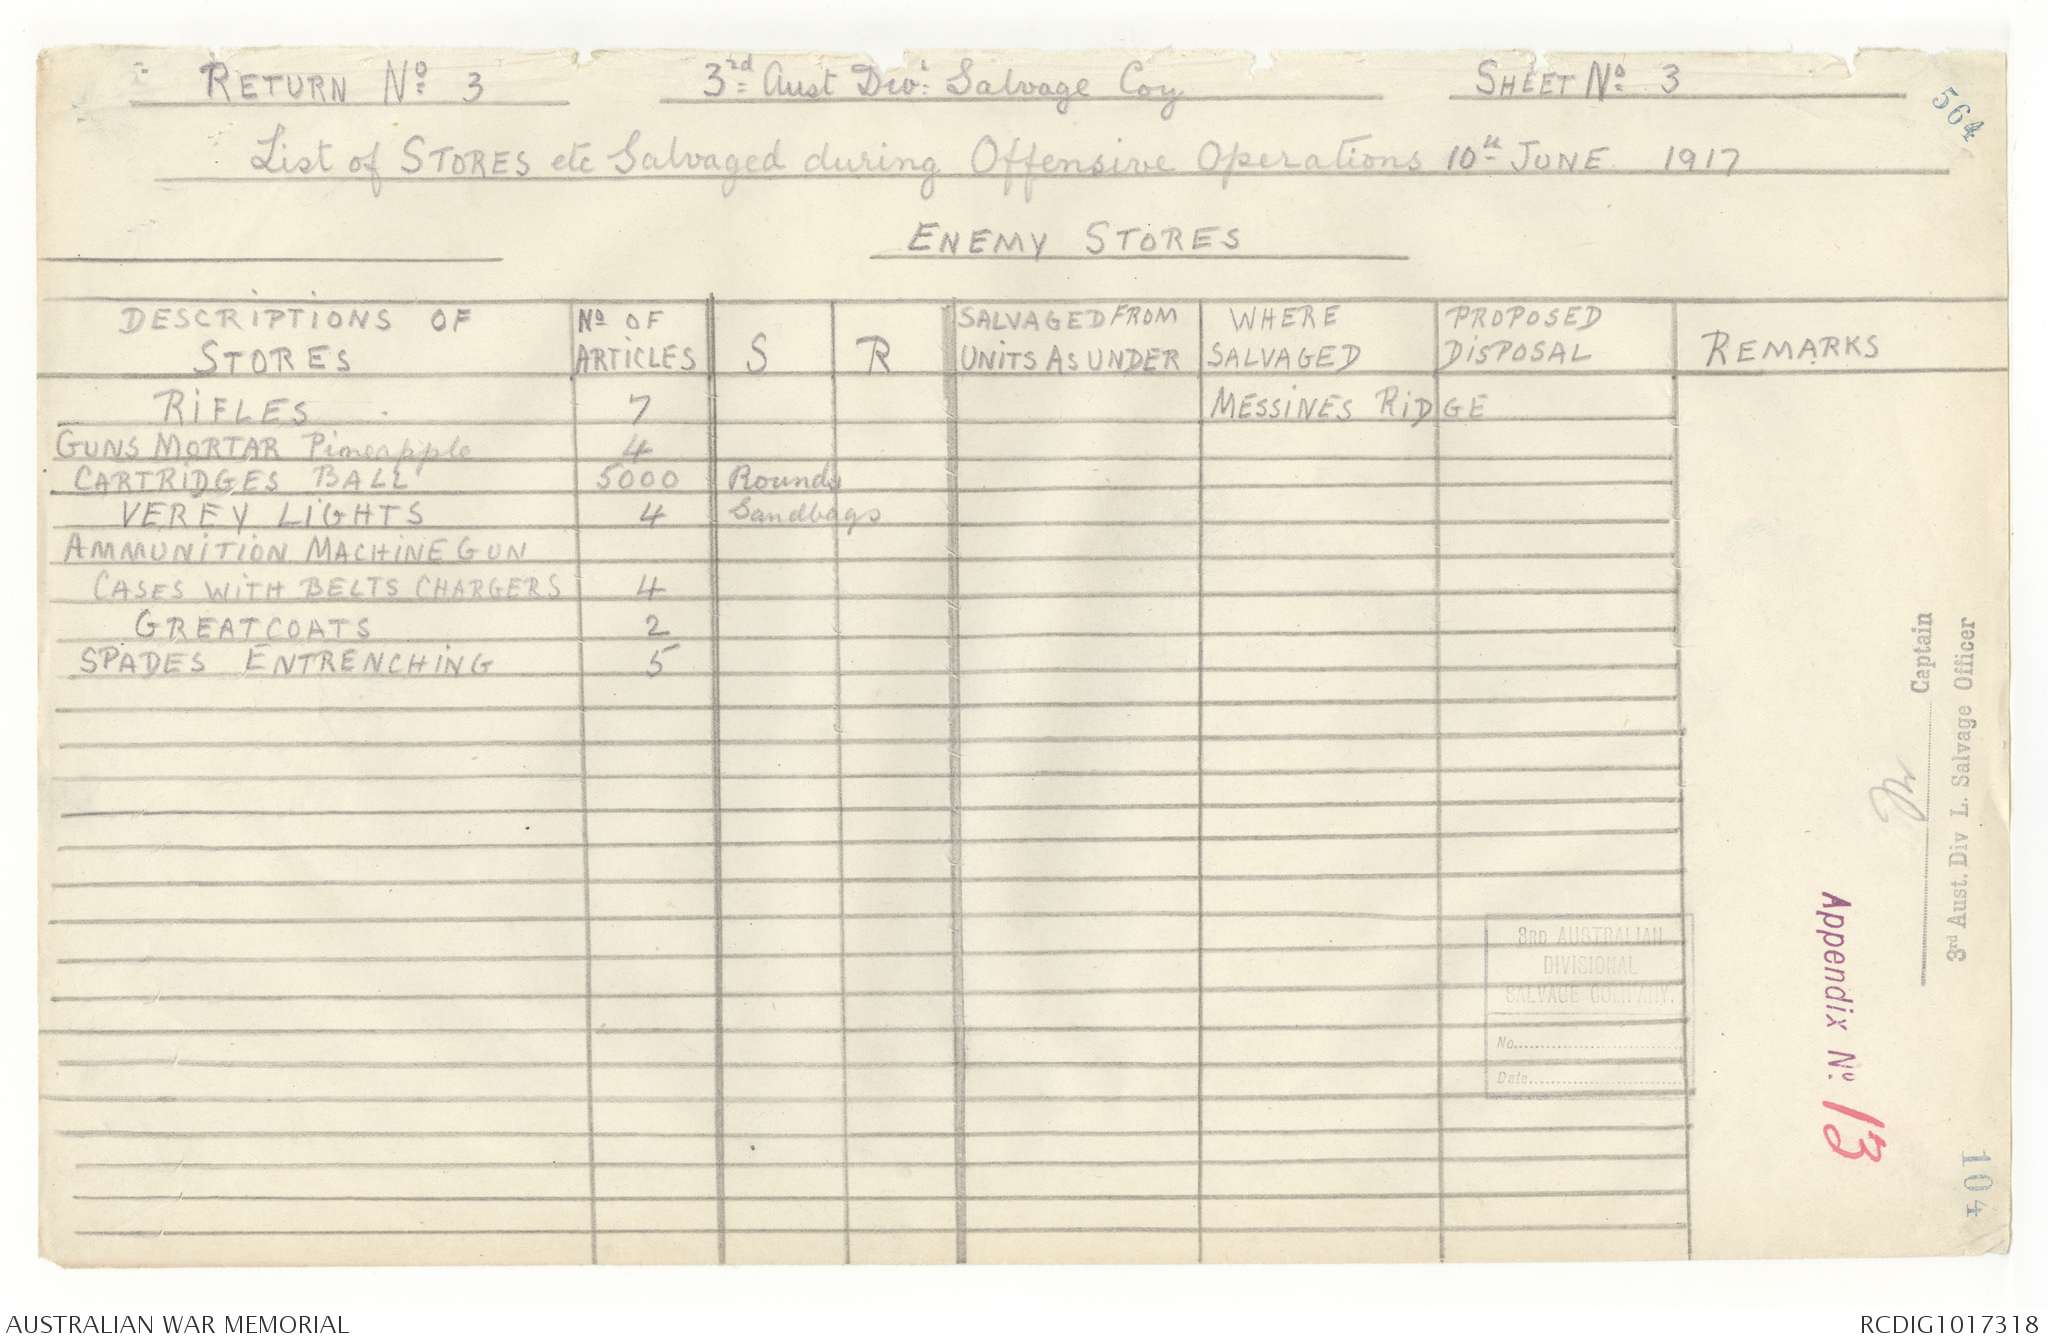 RETURN No 3    3rd Aust Div: Salvage Coy    SHEET No 3
564
List of STORES etc Salvaged during Offensive Operations 10th JUNE 1917
ENEMY STORES
DESCRIPTIONS OF STORES    No OF ARTICLES    S    R    SALVAGED FROM UNITS AS UNDER    WHERE SALVAGED    PROPOSED DISPOSAL    REMARKS
RIFLES    7    MESSINES RIDGE
GUNS MORTAR Pineapple    4
CARTRIDGES BALL    5000    Rounds
VEREY LIGHTS    4    Sandbags
AMMUNITION MACHINE GUN
CASES WITH BELTS CHARGERS    4
GREATCOATS    2
SPADES ENTRENCHING    5
Captain
3rd Aust. Div L. Salvage Officer
3RD AUSTRALIAN
DIVISIONAL
SALVAGE COMPANY.
No.
Date
Appendix No. 13
104
AUSTRALIAN WAR MEMORIAL    RCDIG1017318